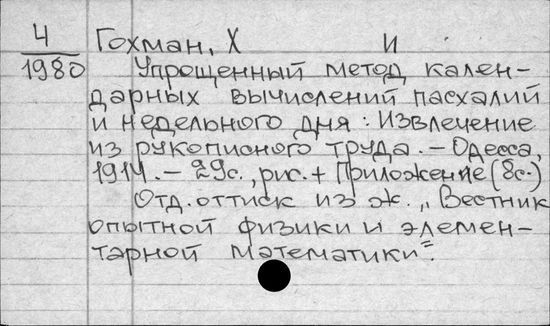 4 Гохман, Х
1980 и
Упрощенный метод кален-
дарных вычислений пасхалий
и недельного дня : Извлечение
из рукописного труда. – Одесса,
1914. – 29с., рис. + Приложение (8с.)
Отд. оттиск из ж. „Вестник
опытной физики и элемен-
тарной математики".